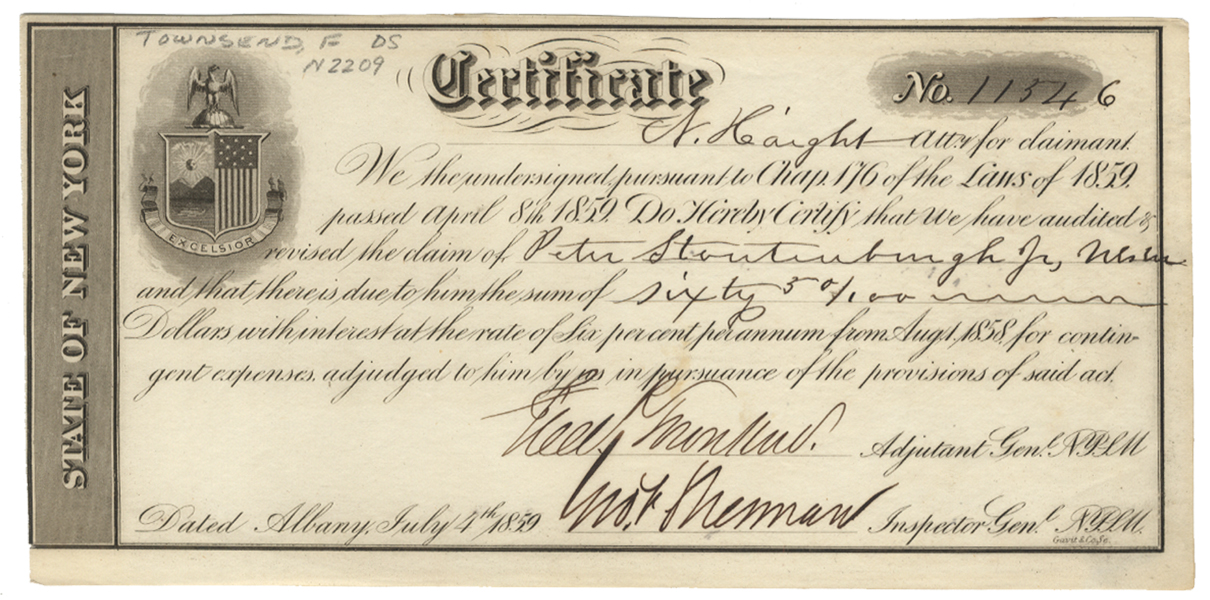 TOWNSEND, F DS
N2209
STATE OF NEW YORK
EXCELSIOR
Certificate
No. 11546
N. Haight Atty for claimant.
We the undersigned, pursuant to Chap. 176 of the Laws of 1859.
passed April 8th 1859. Do Hereby Certify that we have audited &
revised the claim of Peter Stoutenburgh Jr,
and that there is due to him the sum of sixty 50/100
Dollars with interest at the rate of Six per cent per annum from Augt 1, 1858, for contin-
gent expenses adjudged to him by us in pursuance of the provisions of said act.
Fred. Townsend. Adjutant Genl. N.Y.S.M
Dated Albany, July 4th 1859 Inspector Genl. N.Y.S.M.
Gavit & Co. Sc.